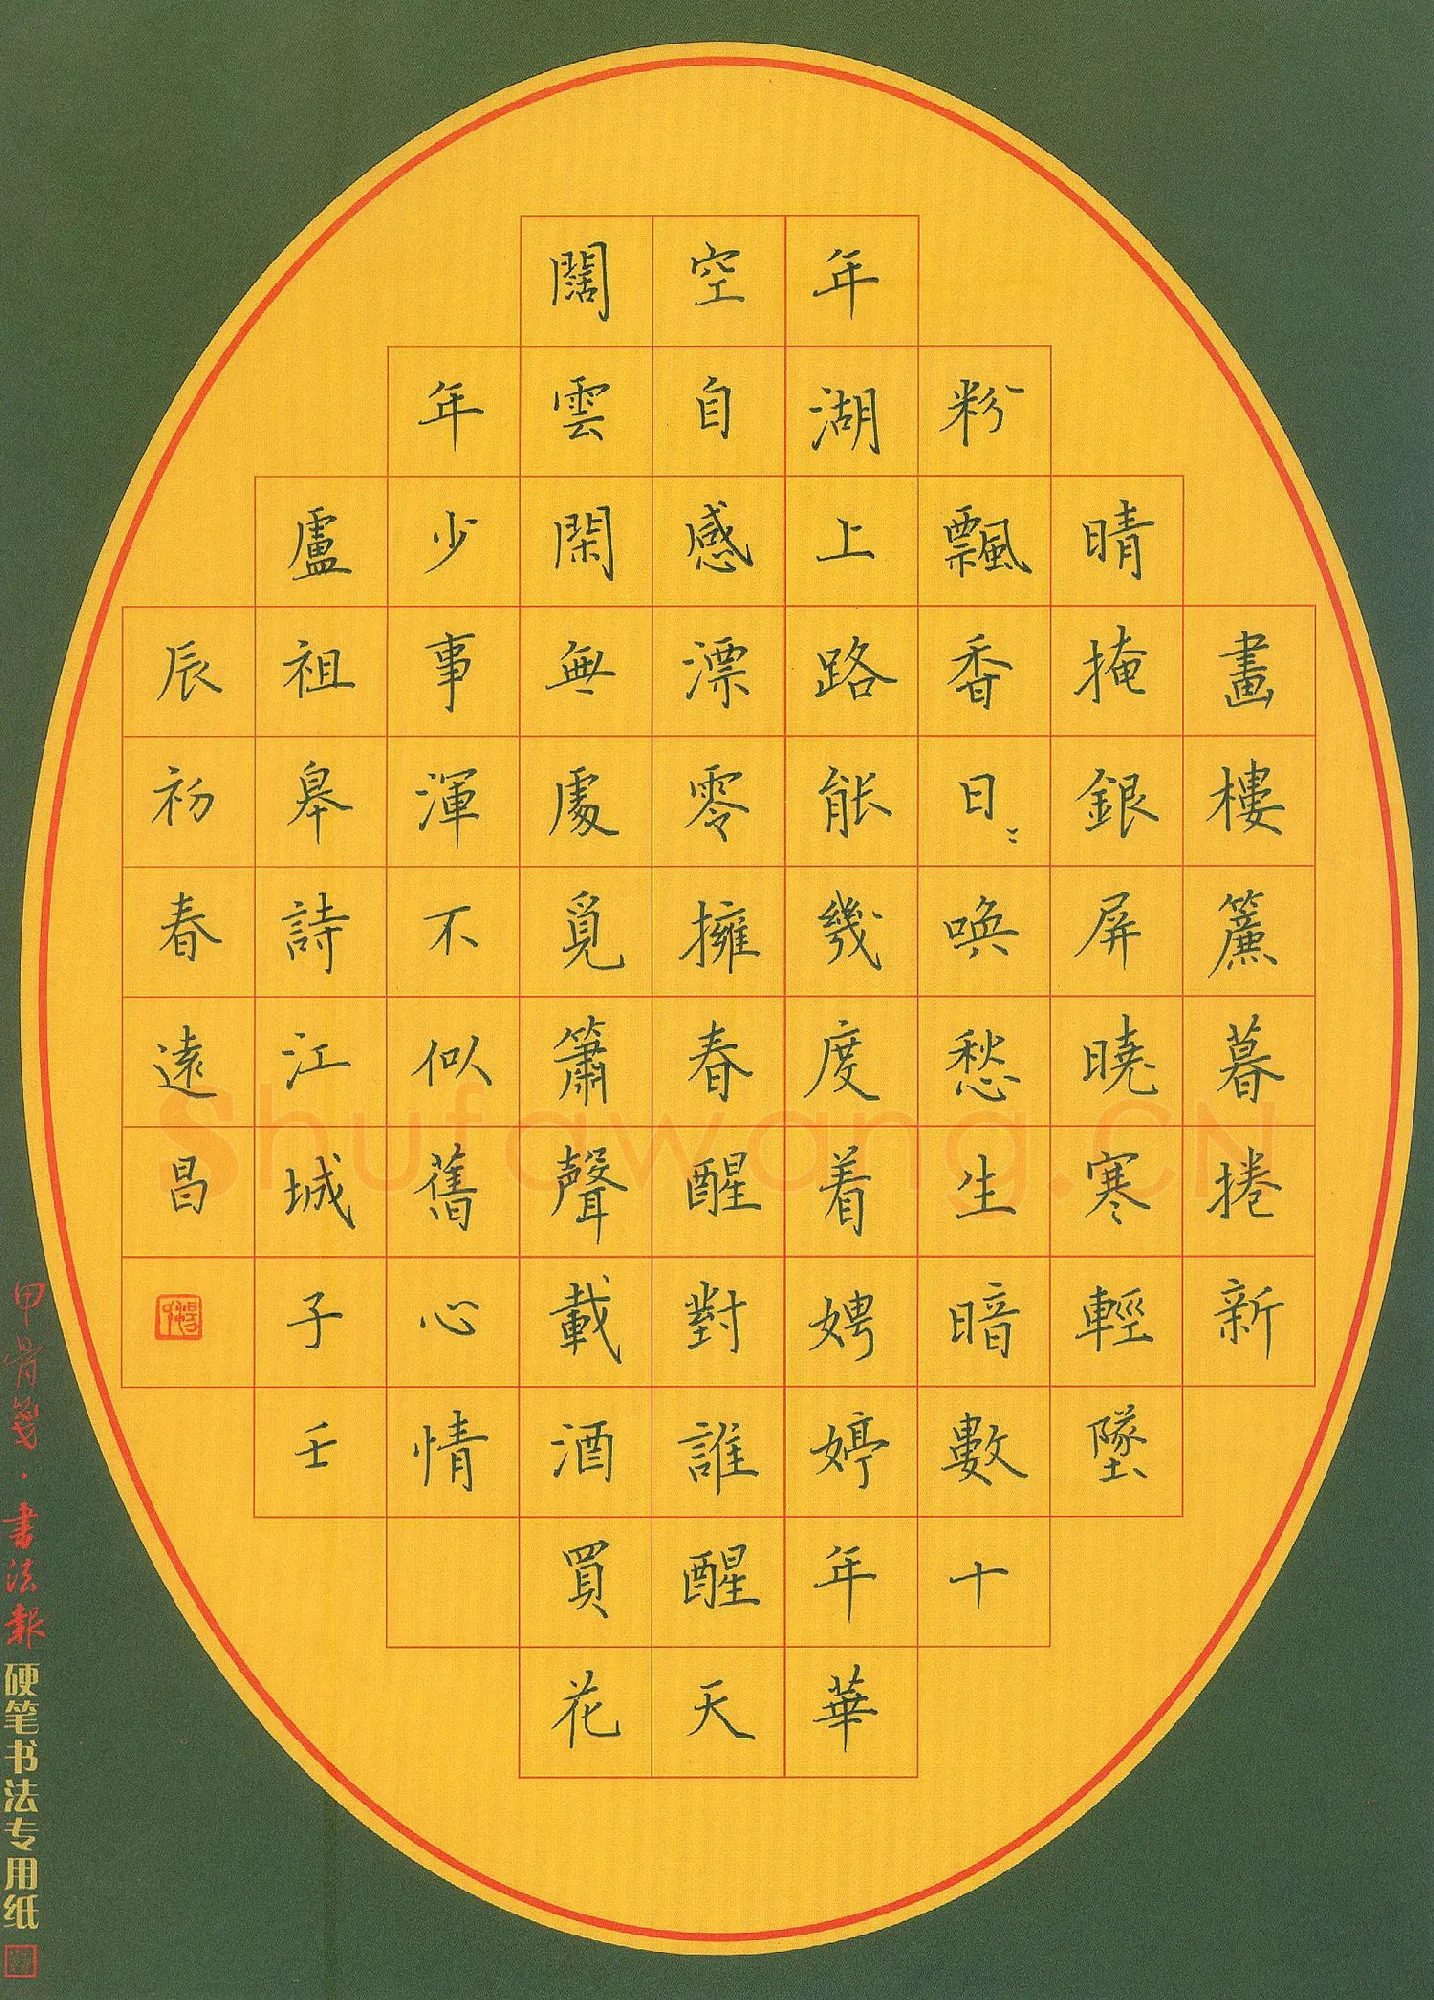 畫樓簾暮捲新
晴掩銀屏曉寒輕墜
粉飄香日〻喚愁生暗數十
年湖上路能幾度着娉婷年華
空自感漂零擁春醒對誰醒天
闊雲閑無處覓簫聲載酒買花
年少事渾不似舊心情
盧祖皋詩江城子壬
辰初春遠昌
甲骨箋·書法報
硬笔书法专用纸
Shufawang.CN